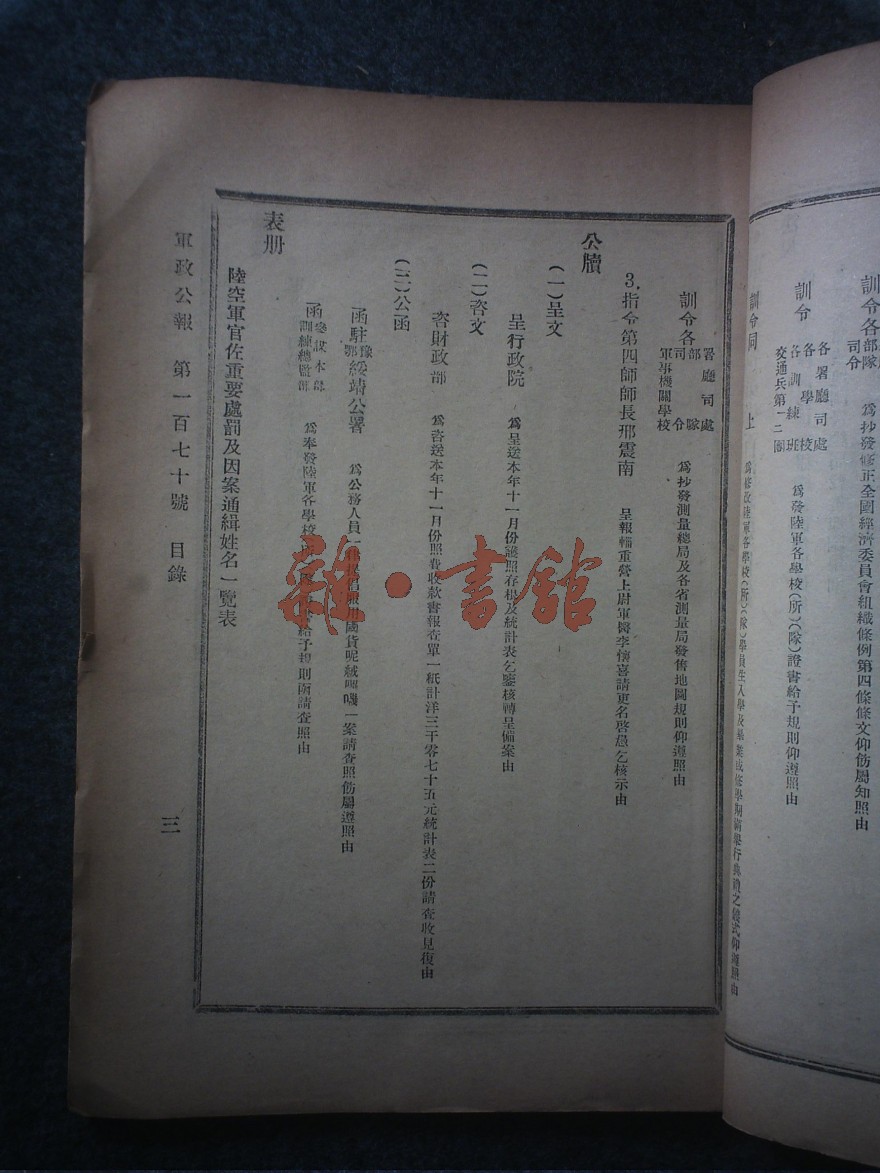 訓令各部隊司令 為抄發修正全國經濟委員會組織條例第四條條文仰飭屬知照由
訓令各署廳司處各學校各訓練班交通兵第一二團 為發陸軍各學校(所)(隊)證書給予規則仰遵照由
訓令同上 為修改陸軍各學校(所)(隊)學員生入學及畢業或修學期滿舉行典禮之儀式仰遵照由
訓令各署廳司處部隊司令軍事機關學校 為抄發測量總局及各省測量局發售地圖規則仰遵照由
3.指令第四師師長邢震南 呈報輜重營上尉軍醫李懷喜請更名啓愚乞核示由
公牘
(一)呈文
呈行政院 為呈送本年十一月份護照存根及統計表乞鑒核轉呈備案由
(二)咨文
咨財政部 為咨送本年十一月份照費收款書報查單一紙計洋三千零七十五元統計表二份請查收見復由
(三)公函
函駐豫鄂綏靖公署 為公務人員一律服用國貨呢絨嗶嘰一案請查照飭屬遵照由
函參謀本部訓練總監部 為奉發陸軍各學校給予規則函請查照由
表册
陸空軍官佐重要處罰及因案通緝姓名一覽表
軍政公報 第一百七十號 目錄
三
雜·書館